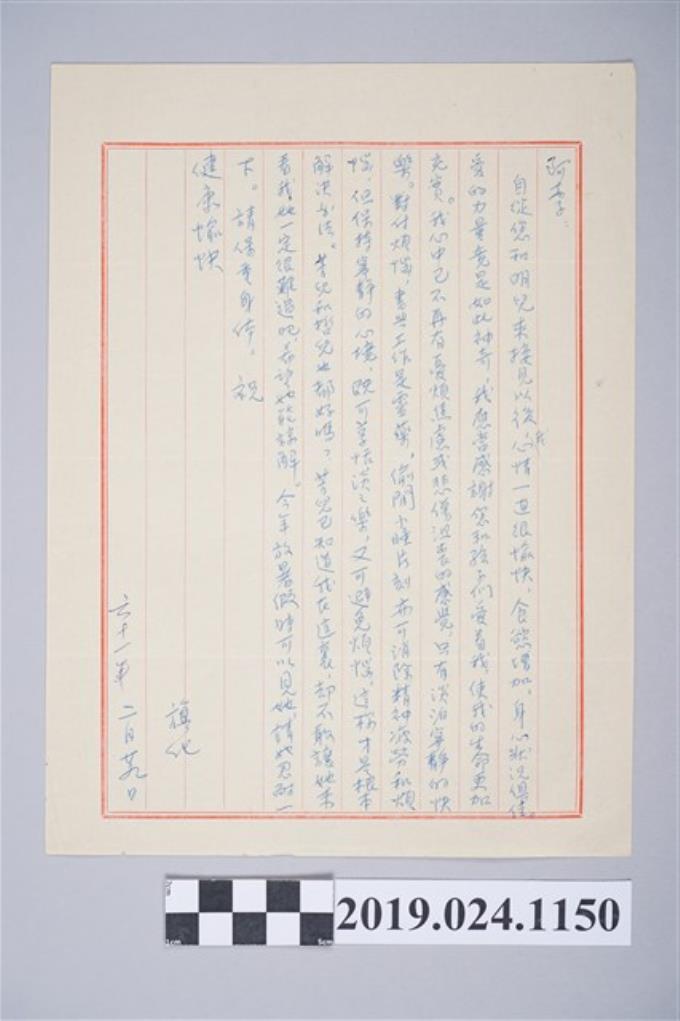 阿李：
自從您和明兒來接見以後，我心情一直很愉快，食慾增加，身心狀況俱佳。
愛的力量竟是如此神奇，我應當感謝您和孩子們愛着我，使我的生命更加
充實。我心中已不再有憂煩焦慮或悲傷沮喪的感覺，只有淡泊寧靜的快
樂。對付煩惱，書與工作是靈藥，偷閒小睡片刻亦可消除精神疲勞和煩
惱，但保持寧靜的心境，既可享恬淡之樂，又可避免煩惱，這種才是根本
解決辦法。芳兒和哲兒也都好嗎？芳兒已知道我在這裏，却不敢讓她來
看我她一定很難過吧，希望她能諒解。今年放暑假時可以見她，請她忍耐一
下。請保重身体，祝
健康愉快
旗化
六十一年 二月廿九日
2019.024.1150
1cm
5cm